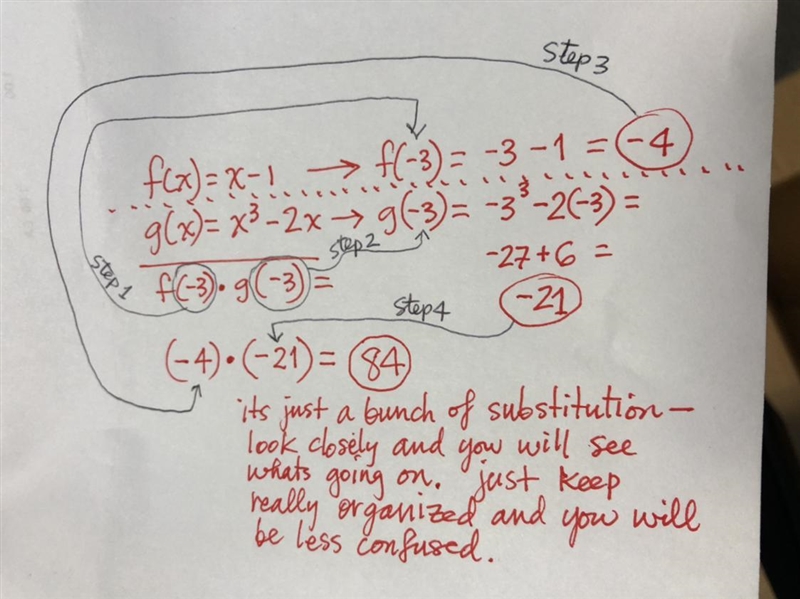 Step 3
f(x) = x - 1 → f(-3) = -3 - 1 = -4
g(x) = x³ - 2x → g(-3) = -3³ - 2(-3) =
step 2
-27 + 6 =
step 1
f(-3) · g(-3) =
-21
Step 4
(-4) · (-21) = 84
its just a bunch of substitution —
look closely and you will see
whats going on. just keep
really organized and you will
be less confused.